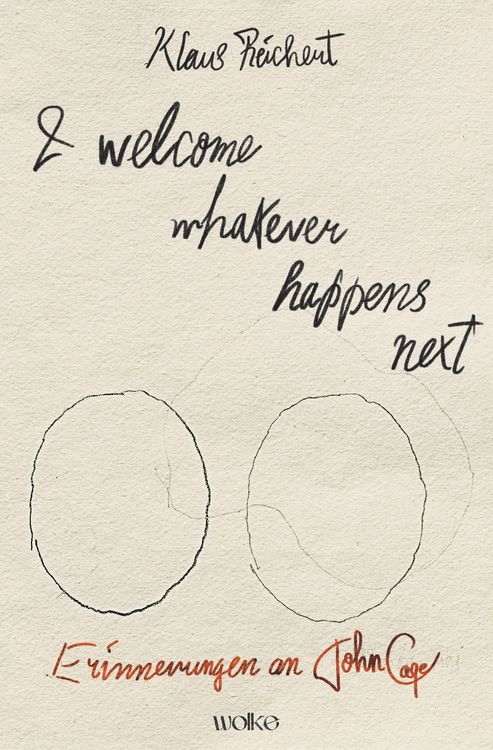 Klaus Reichert
& welcome
whatever
happens
next
Erinnerungen an John Cage
wolke